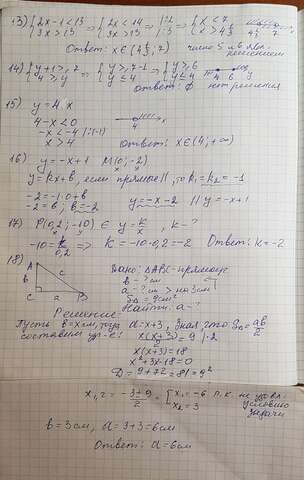 13) {2x-1<13 3x>13 ⇒ {2x<14 3x>13 |:2 |:3 ⇒ {x<7 x>4⅓
Ответ: x∈(4⅓; 7) число 5 и 6 явл. решением
14) {y+1>7 4≥y ⇒ {y>7-1 y≤4 ⇒ {y>6 y≤4 4 6 y
Ответ: ∅ нет решения
15) y=4-x
4-x<0
-x<-4 |:(-1)
x>4 Ответ: x∈(4; +∞)
16) y=-x+1 M(0;-2)
y=kx+b, если прямые ||, то k₁=k₂=-1
-2=-1·0+b
-2=b; b=-2 y=-x-2 || y=-x+1
17) P(0,2; -10) ∈ y=k/x, k-?
-10=k/0,2 ⇒ k=-10·0,2=-2 Ответ: k=-2
18) Дано: △ABC-прямоуг.
A b c C a B
b-?см
a-?см > на 3см
S△=9см²
Найти: a-?
Решение:
Пусть b=x см, тогда a=x+3, зная, что S△=ab/2
составим ур-е: x(x+3)/2=9 |·2
x(x+3)=18
x²+3x-18=0
D=9+72=81=9²
x₁,₂=(-3±9)/2=[x₁=-6 п.к. не удовл. условию задачи x₂=3
b=3см, a=3+3=6см
Ответ: a=6см